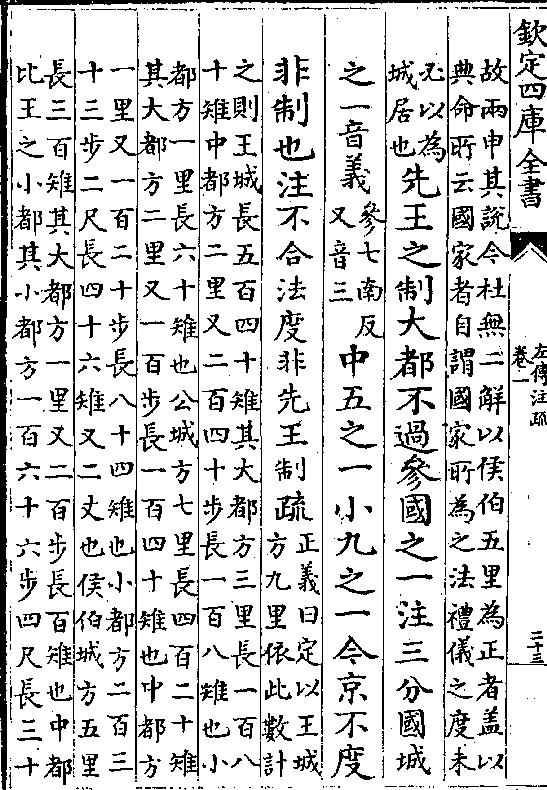 欽定四庫全書
左傳注疏
卷一
二十三
故兩申其説今杜無二解以侯伯五里為正者盖以
典命所云國家者自謂國家所為之法禮儀之度未
必以為
城居也
先王之制大都不過參國之一注三分國城
之一音義
參七南反
又音三
中五之一小九之一今京不度
非制也注不合法度非先王制疏
正義曰定以王城
方九里依此數計
之則王城長五百四十雉其大都方三里長一百八
十雉中都方二里又二百四十步長一百八雉也小
都方一里長六十雉也公城方七里長四百二十雉
其大都方二里又一百步長一百四十雉也中都方
一里又一百二十步長八十四雉也小都方二百三
十三步二尺長四十六雉又二丈也侯伯城方五里
長三百雉其大都方一里又二百步長百雉也中都
比王之小都其小都方一百六十六步四尺長三十